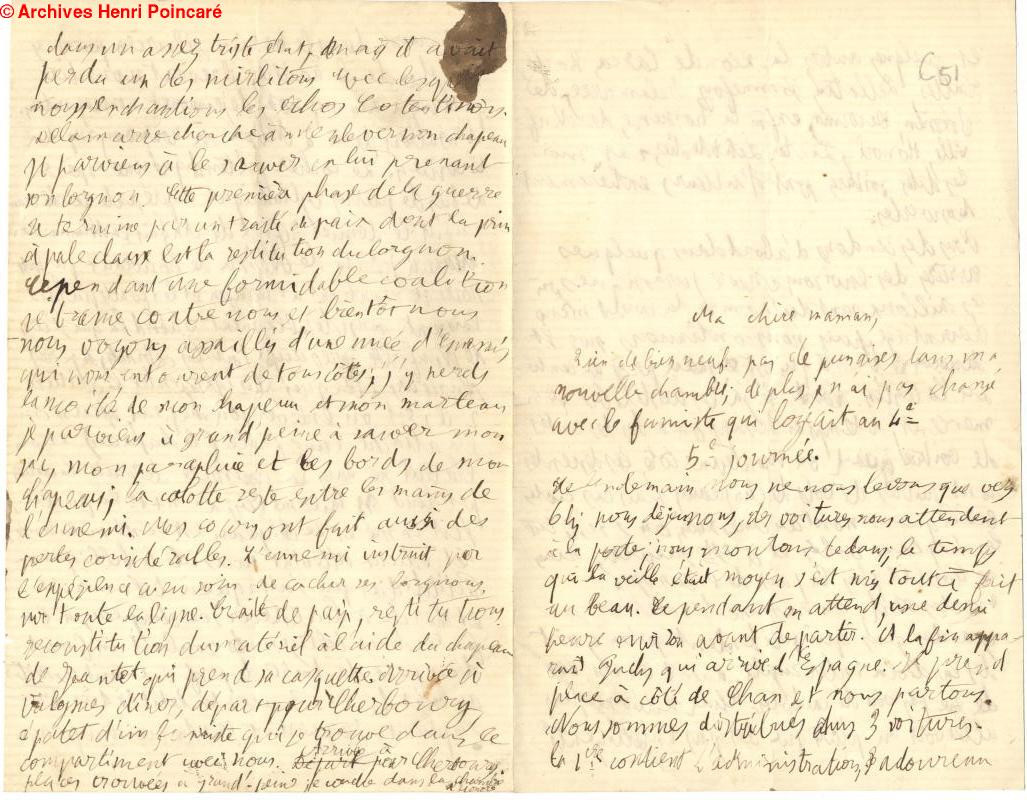 © Archives Henri Poincaré
dans un assez triste état, mais il avait
perdu un des mirlitons avec lesquels
nous enchantions les échos Cotentinois.
Delamarre cherche à m'enlever mon chapeau
je parviens à le sauver en lui prenant
son lorgnon. Cette première phase de la guerre
se termine par un traité de paix dont la prin
cipale clause est la restitution du lorgnon.
Cependant une formidable coalition
se trame contre nous et bientôt nous
nous voyons assaillis d'une nuée d'ennemis
qui nous entourent de tous côtés; j'y perds
la moitié de mon chapeau et mon marteau
je parviens à grand peine à sauver mon
mon parapluie et les bords de mon
chapeau; la calotte reste entre les mains de
l'ennemi. Mes cocons ont fait aussi des
pertes considérables. L'ennemi instruit par
l'expérience a eu soin de cacher ses lorgnons
sur toute la ligne. Traité de paix, restitutions
reconstitution du matériel à l'aide du chapeau
de qui prend sa casquette. Arrivée à
Valognes dîner, départ pour Cherbourg
épatet d'un fumiste qui se trouve dans le
compartiment avec nous. Départ Arrivée à Cherbourg.
places trouvées à grand-peine je couche dans la chambre
C51
Ma chère maman,
Rien de bien neuf pas de punaises dans ma
nouvelle chambre; de plus j'en ai pas changé
avec le fumiste qui logeait au 4e
5e journée.
Le lendemain nous ne nous levons que vers
6h; nous déjeunons, des voitures nous attendent
à la porte; nous montons dedans; le temps
qui la veille était moyen s'est mis tout à fait
au beau. Cependant on attend, une demi
heure environ avant de partir. A la fin appa
raît qui arrive d'Espagne. Il prend
place à côté de Chan et nous partons.
Nous sommes distribués dans 3 voitures.
la 1ère contient l'administration, Badoureau